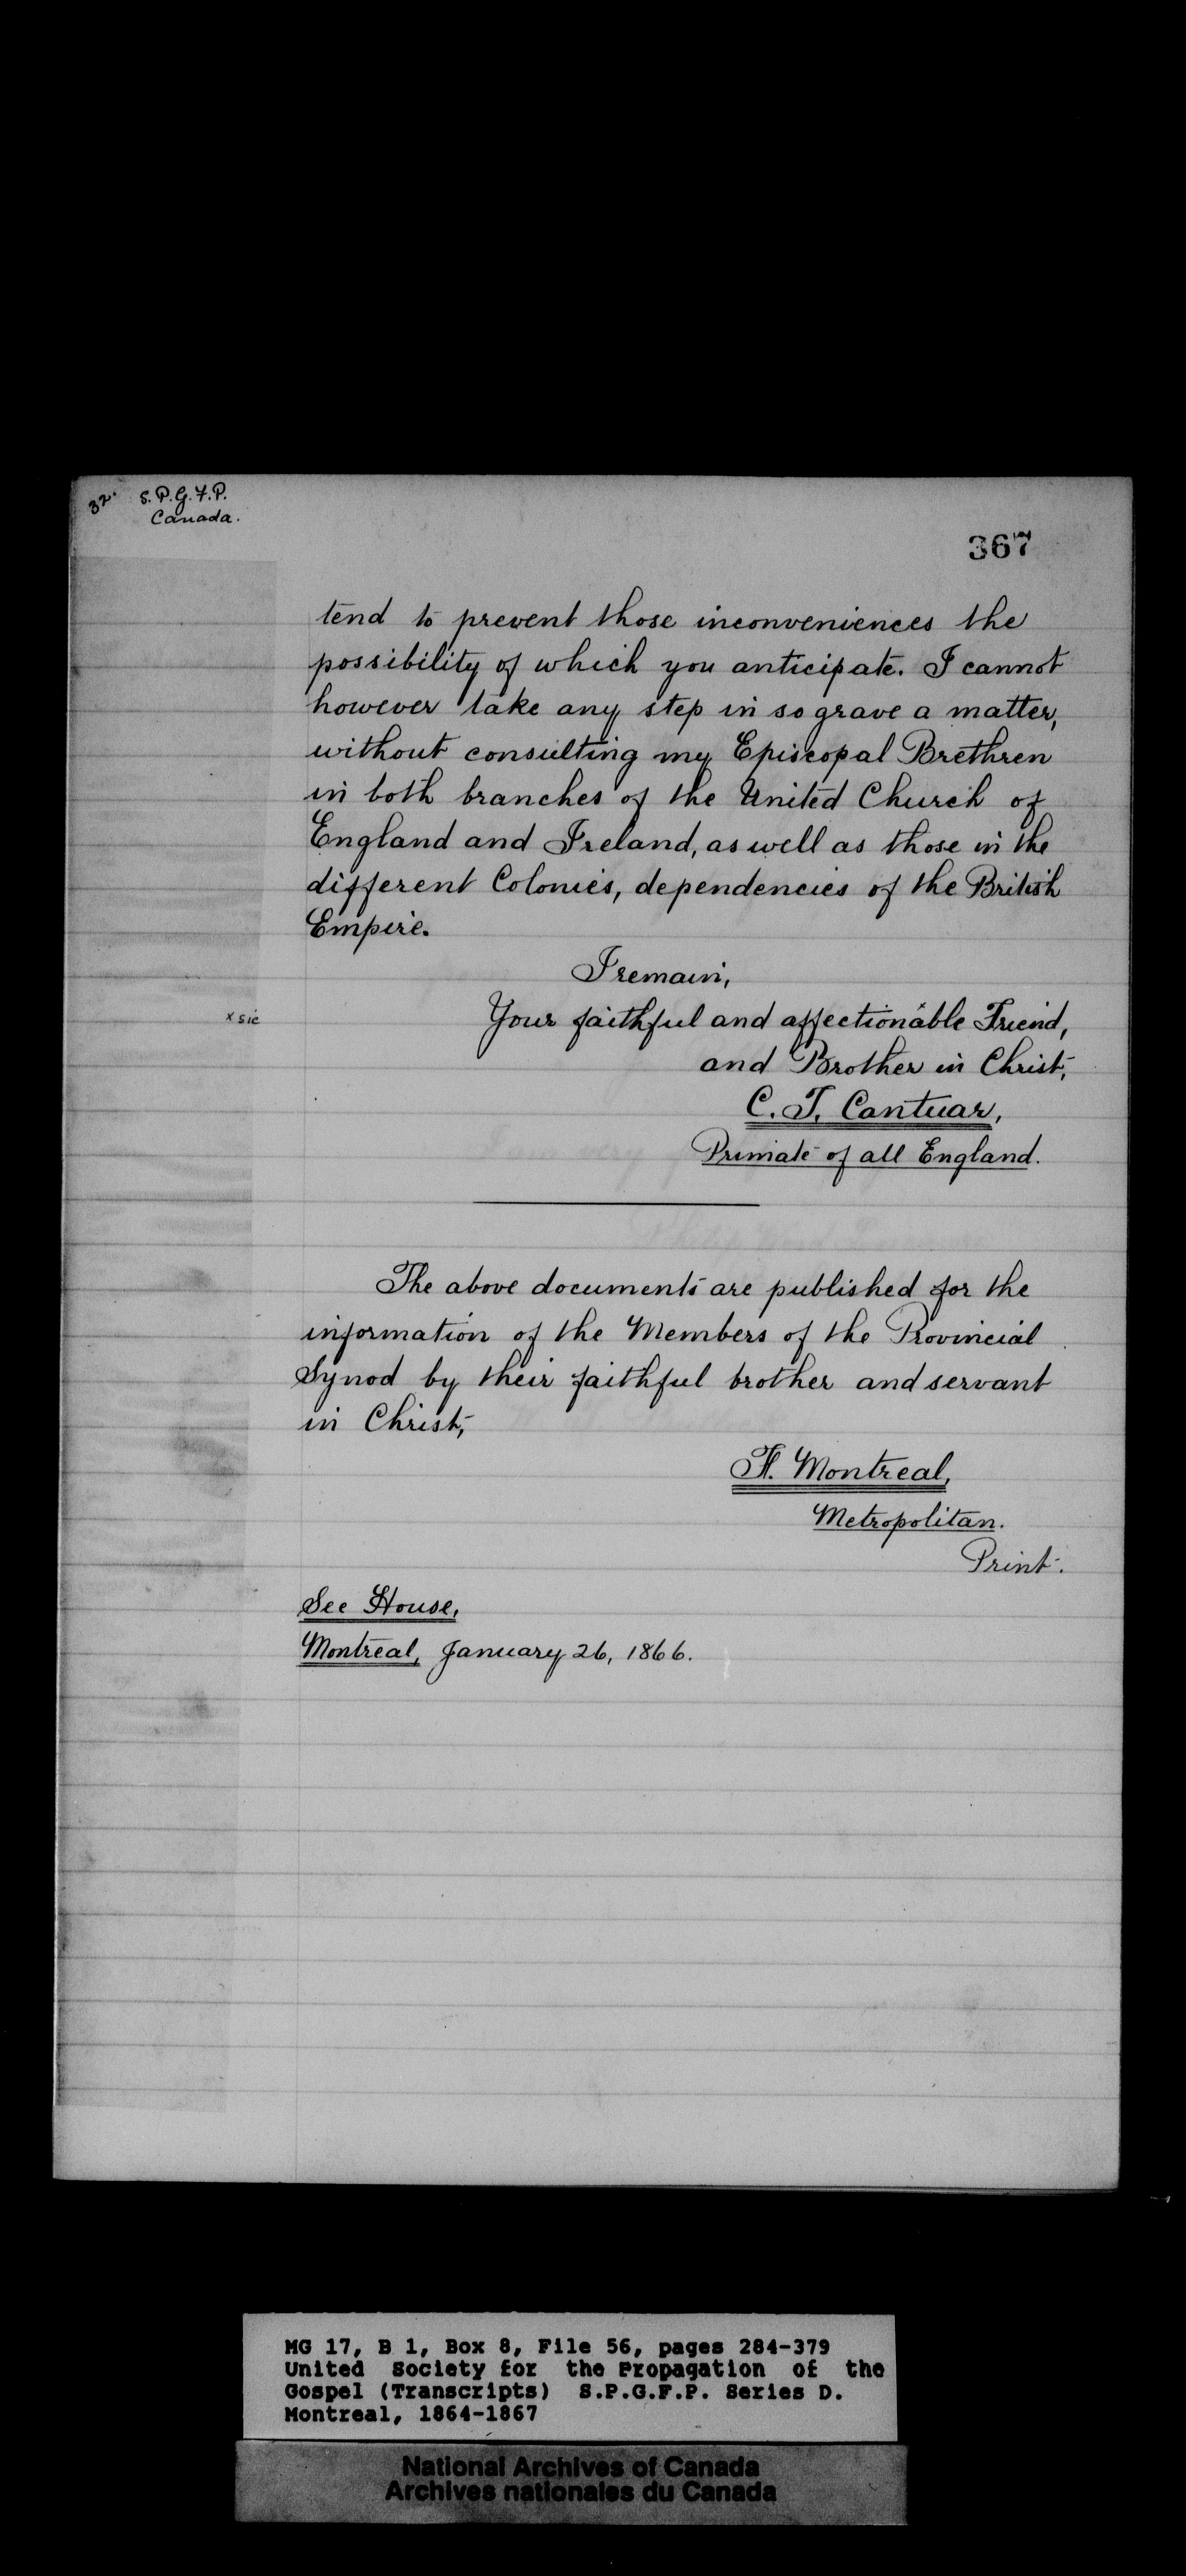 32. S.P.G.F.P.
Canada.
367
tend to prevent those inconveniences the
possibility of which you anticipate. I cannot
however take any step in so grave a matter,
without consulting my Episcopal Brethren
in both branches of the United Church of
England and Ireland, as well as those in the
different Colonies, dependencies of the British
Empire.
I remain,
x sic
Your faithful and affectionable Friend,
and Brother in Christ,
C. T. Cantuar,
Primate of all England.
The above documents are published for the
information of the Members of the Provincial
Synod by their faithful brother and servant
in Christ,
F. Montreal,
Metropolitan.
Print.
See House,
Montreal, January 26, 1866.
MG 17, B 1, Box 8, File 56, pages 284-379
United Society for the Propagation of the
Gospel (Transcripts) S.P.G.F.P. Series D.
Montreal, 1864-1867
National Archives of Canada
Archives nationales du Canada